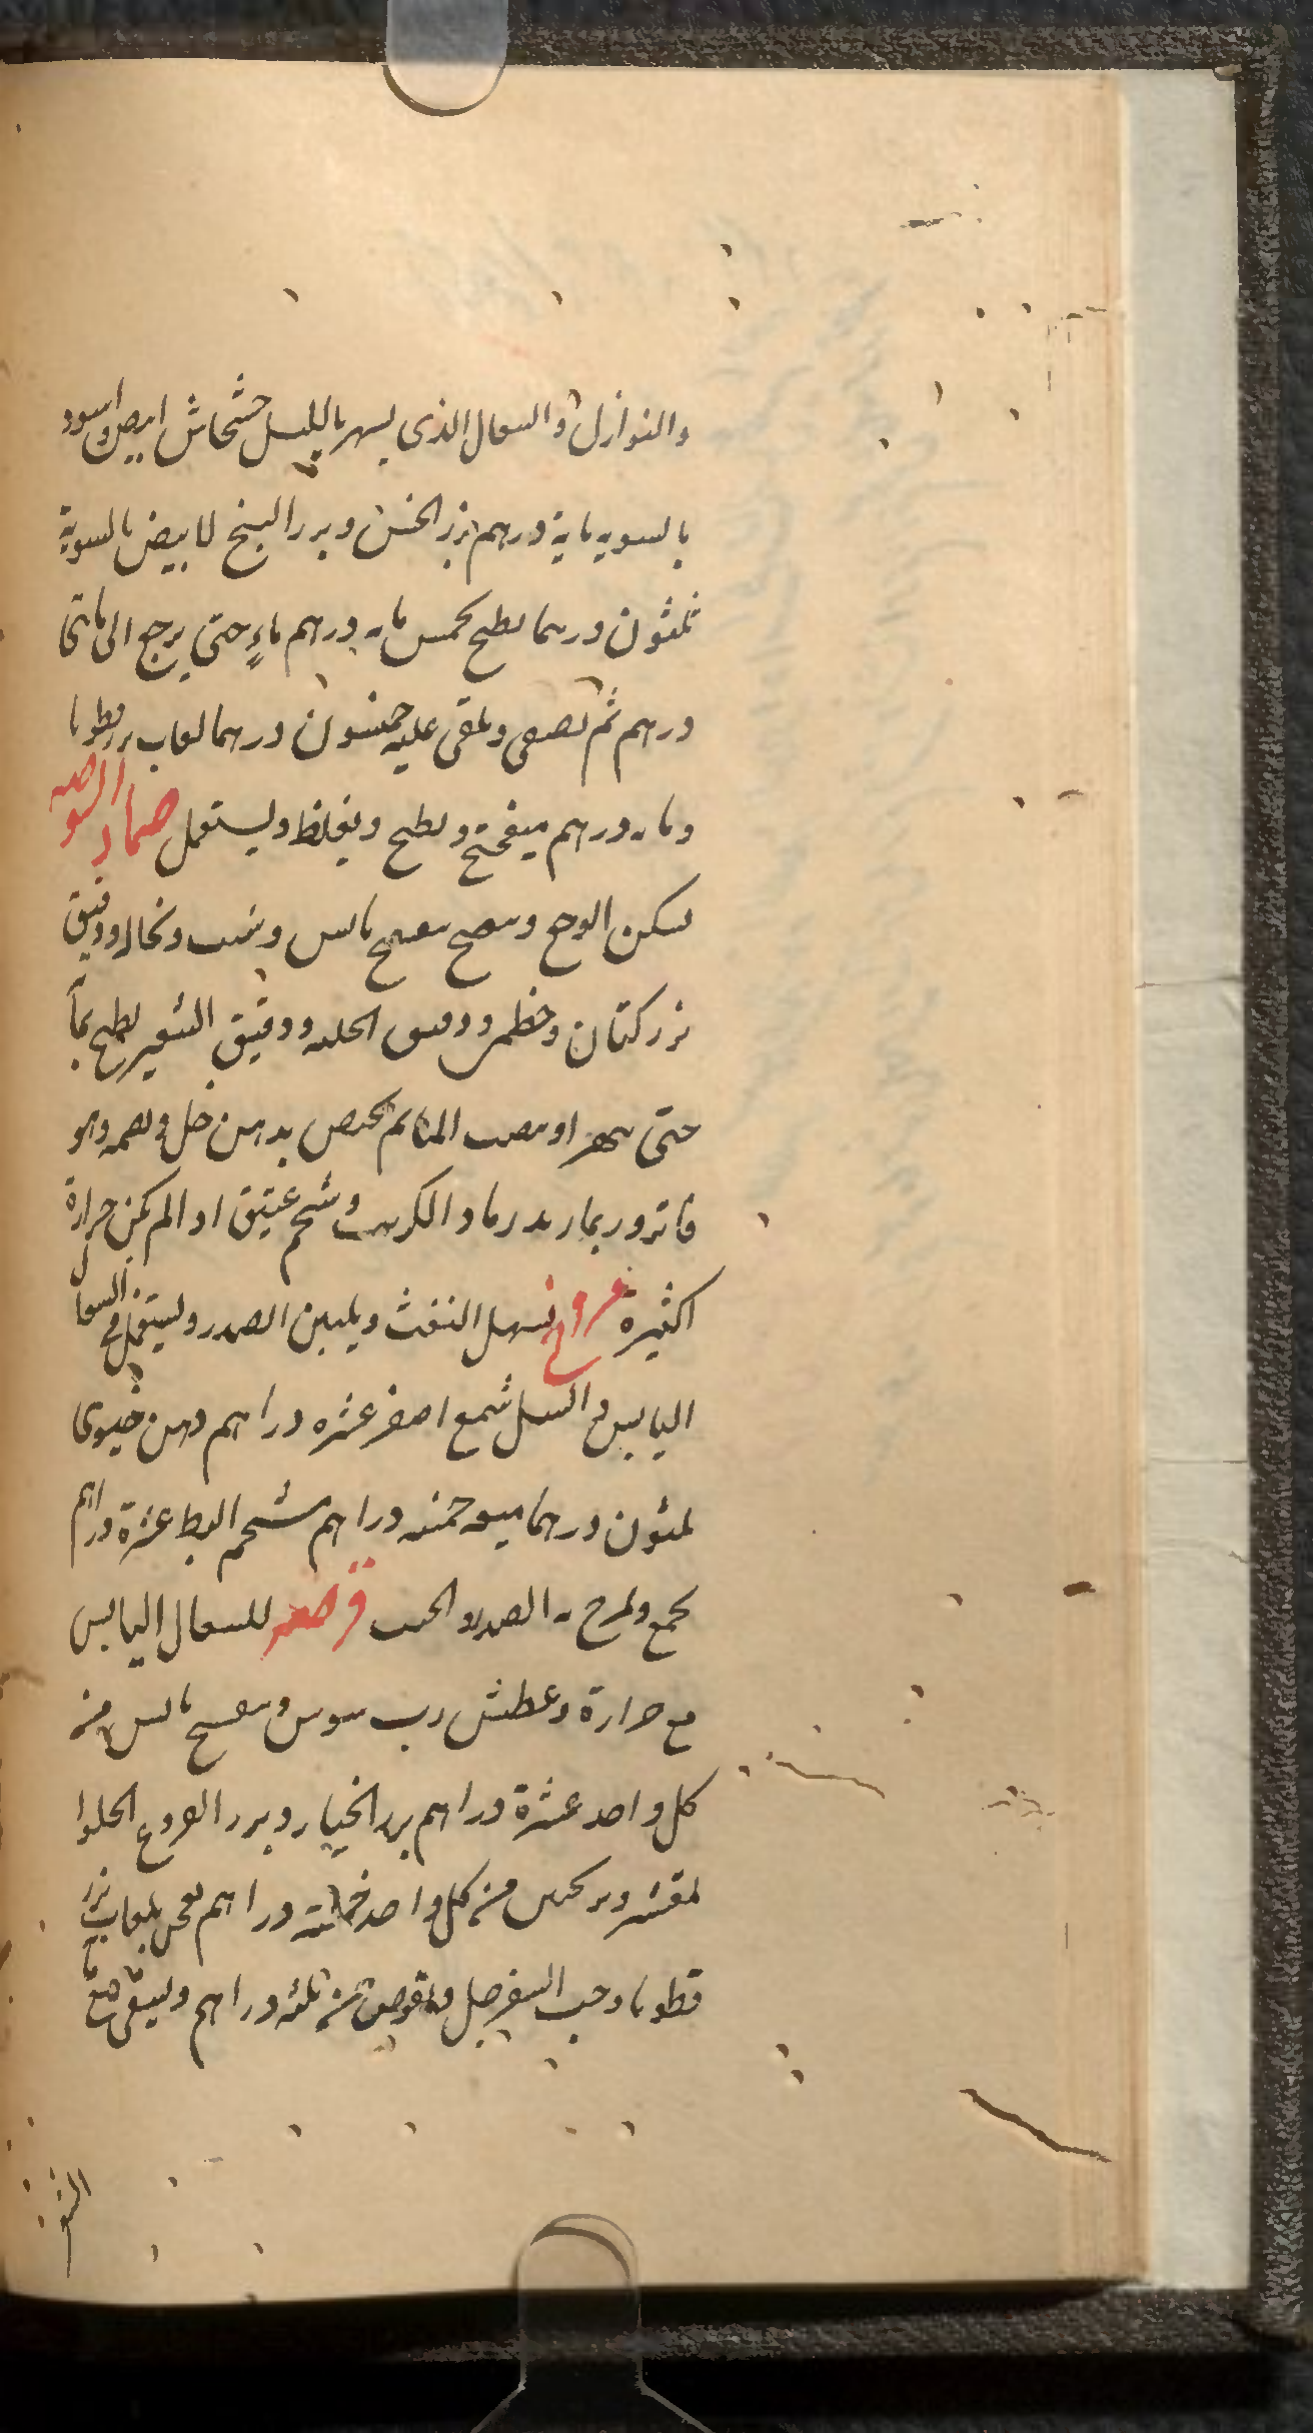 والنوازل والسعال الذى يسهر بالليل خشخاش ابيض واسود
بالسويه مايه درهم بزر الخس وبزر البنج لابيض بالسوية
ثلثون درهما يطبخ بخمس مايه درهم ماءٍ حتى يرجع الى مائتى
درهم ثم يصفى ويلقى عليه خمسون درهما لعاب بزر قطونا
ومايه درهم ميفختج ويطبخ ويغلظ ويستعمل ضماد الشوصه
يسكن الوجع وينضج بنفسج يابس وشبت ونخاله ودقيق
بزر كتان وخطمى ودقيق الحلبه ودقيق الشعير يطبخ بمآ
حتى يتهرا ويصب الما ثم يخبص بدهن خل ويضمد وهو
فاتر وربما زيد رماد الكرنب وشحم عتيق اذ الم يكن حرارة
اكثيرة مروخ يسهل النفث ويلين الصدر ويستعمل فى السعال
اليابس والسل شمع اصفر عشره دراهم دهن خيرى
ثلثون درهما ميعه خمسه دراهم شحم البط عشرة دراهم
يجمع ويمرخ به الصدر والجنب قرصه للسعال اليابس
مع حرارة وعطش رب سوس وبنفسج يابس من
كل واحد عشرة دراهم بزر الخيار وبزر القرع الحلوا
لمقشر وبزر خس من كل واحد خمسة دراهم يعجن بلعاب بزر
قطونا وحب السفرجل ويقرص من ثلثه دراهم ويسقى مع